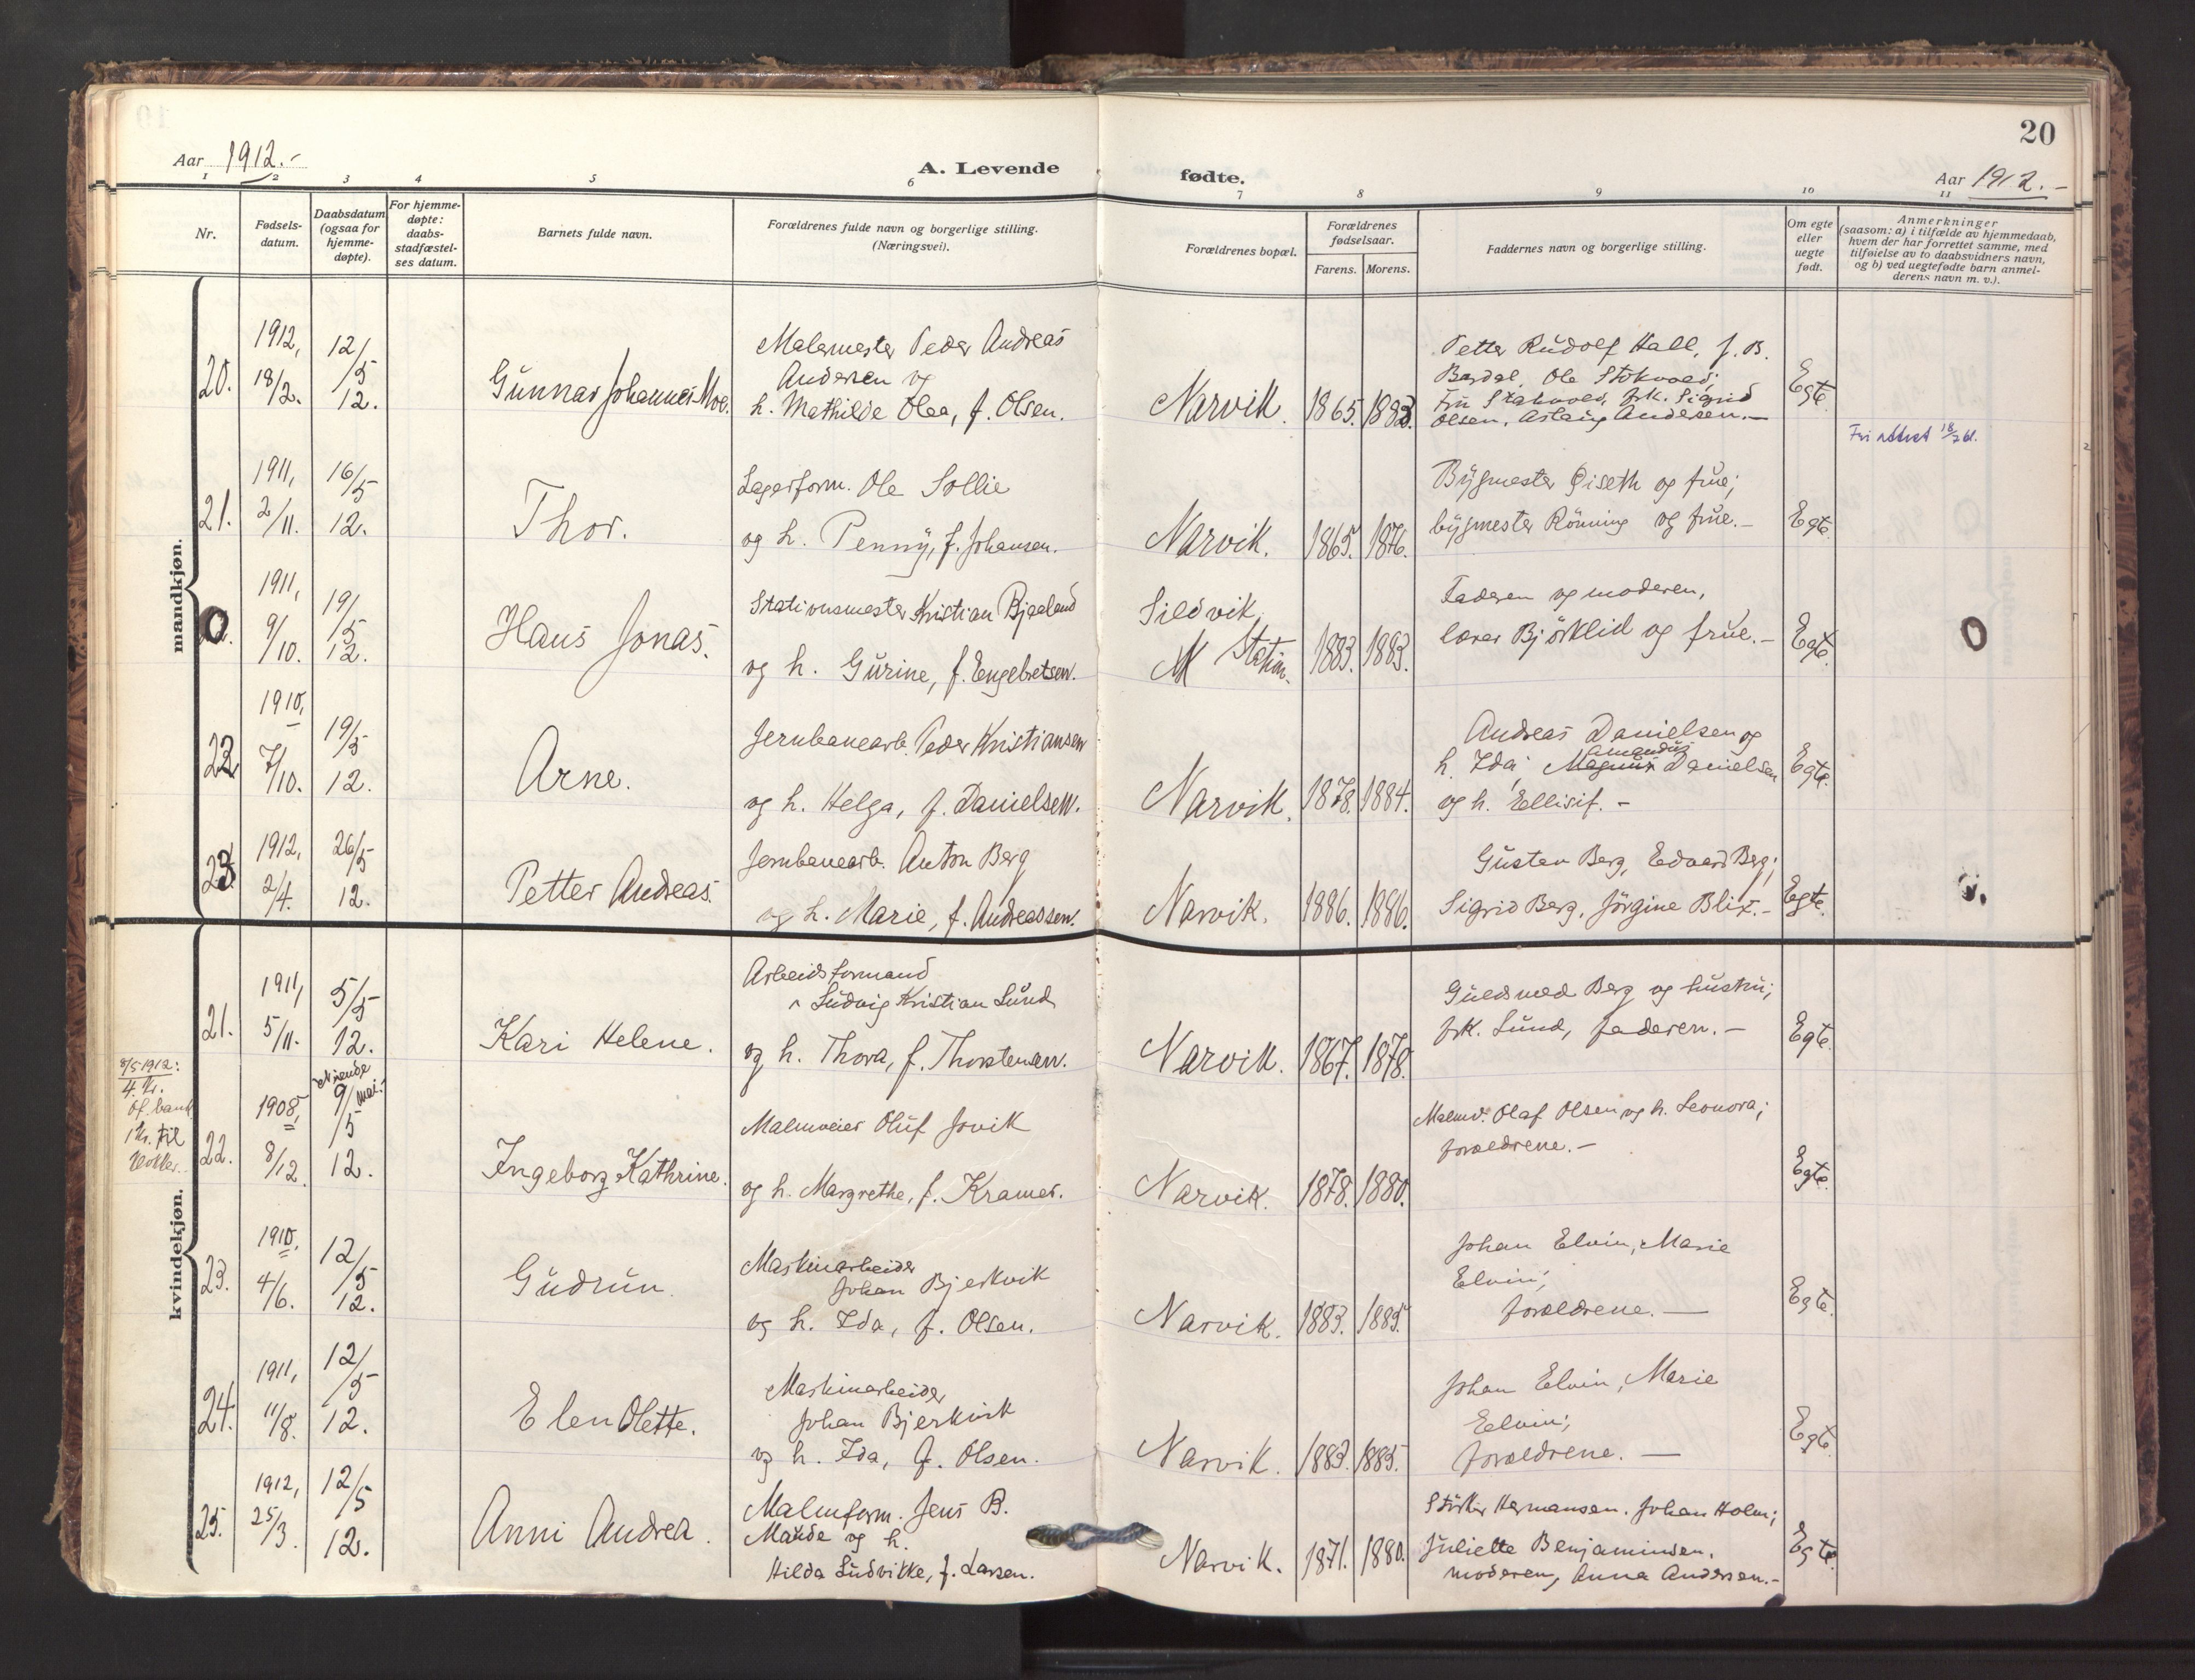 20
Aar 1912.-
A. Levende
fødte.
Aar 1912.-
1 2 3 4 5 6 7 8 9 10 11
Nr.
Fødsels-
datum.
Daabsdatum
(ogsaa for
hjemme-
døpte).
For hjemme-
døpte:
daabs-
stadfæstel-
ses datum.
Barnets fulde navn.
Forældrenes fulde navn og borgerlige stilling.
(Næringsvei).
Forældrenes bopæl.
Forældrenes
fødselsaar.
Farens. Morens.
Faddernes navn og borgerlige stilling.
Om egte
eller
uegte
født.
Anmerkninger
(saasom: a) i tilfælde av hjemmedaab,
hvem der har forrettet samme, med
tilføielse av to daabsvidners navn,
og b) ved uegtefødte barn anmel-
derens navn m. v.).
mandkjøn.
20.
1912,
18/2.
12/5
12.
Gunnar Johannes Moe.
Malermester Peder Andreas
Andersen og
h. Mathilde Olea, f. Olsen.
Narvik.
1865. 1883.
Petter Rudolf Hall, J. B.
Bardal, Ole Stokvold;
Fru Stokvold, frk. Sigrid
Olsen, Aslaug Andersen.-
Egte.
Fri attest 18/7 61.
21.
1911,
2/11.
16/5
12.
Thor.
Lagerform. Ole Sollie
og h. Penny, f. Johansen.
Narvik.
1865. 1876.
Bygmester Øiseth og frue;
bygmester Rönning og frue.-
Egte.
0
1911,
9/10.
19/5
12.
Hans Jonas.
Stationsmester Kristian Bjaaland
og h. Gurine, f. Engebretsen.
Sildvik
Station.
1883. 1883.
Faderen og moderen,
lærer Björklid og frue.-
Egte.
0
22
1910,
7/10.
19/5
12.
Arne.
Jernbanearb. Peder Kristiansen
og h. Helga, f. Danielsen.
Narvik.
1878. 1884.
Andreas Danielsen og
Amandus
h. Ida; Magnus Danielsen
og h. Ellisif.-
Egte.
23
1912,
2/4.
26/5
12.
Petter Andreas.
Jernbanearb. Anton Berg
og h. Marie, f. Andreassen.
Narvik.
1886. 1886.
Gustav Berg, Edvard Berg;
Sigrid Berg, Jörgine Blix.-
Egte.
kvindekjøn.
21.
1911,
5/11.
5/5
12.
Kari Helene.
Arbeidsformand
Ludvig Kristian Lund
og h. Thora, f. Thorstensen.
Narvik.
1867. 1878.
Guldsmed Berg og hustru;
frk. Lund, faderen.-
Egte.
8/5 1912:
4 kr.
1 kr. til
22.
1908,
8/12.
niende
9/5 mai.
12.
Ingeborg Kathrine.
Malmveier Oluf Jovik
og h. Margrethe, f. Kramer.
Narvik.
1878. 1880.
Malmv. Olaf Olsen og h. Leonora;
forældrene.-
Egte.
23.
1910,
4/6.
12/5
12.
Gudrun.
Maskinarbeider
Johan Bjerkvik
og h. Ida, f. Olsen.
Narvik.
1883. 1885.
Johan Elvin, Marie
Elvin;
forældrene.-
Egte.
24.
1911,
11/8.
12/5
12.
Elen Olette.
Maskinarbeider
Johan Bjerkvik
og h. Ida, f. Olsen.
Narvik.
1883. 1885.
Johan Elvin, Marie
Elvin;
forældrene.-
Egte.
25.
1912,
25/3.
12/5
12.
Anni Andrea.
Malmform. Jens B.
Maude og h.
Hilda Ludvikke, f. Larsen.
Narvik.
1871. 1880.
Hermansen, Johan Holm;
Juliette Benjaminsen,
moderen, Anna Andersen.-
Egte.